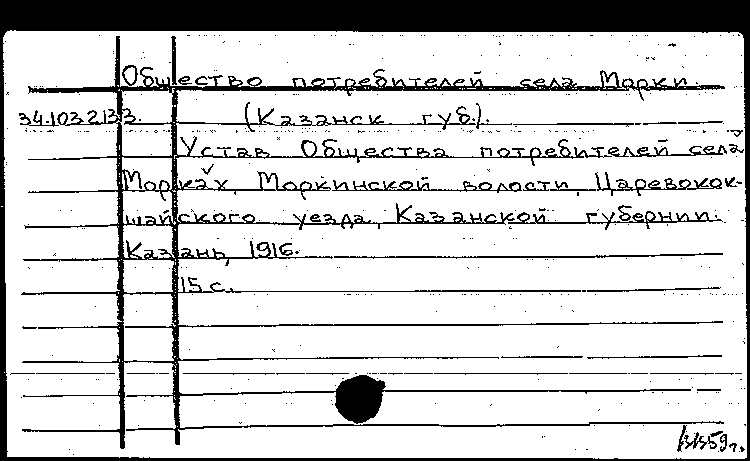 Общество потребителей села Морки
34.103.2133. (Казанск. губ.).
Устав Общества потребителей села
Морках, Моркинской волости, Царевокок-
шайского уезда, Казанской губернии.
Казань, 1916.
15 с.